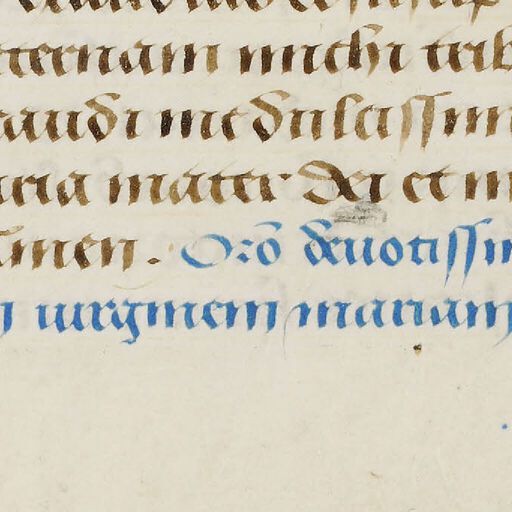 eternam michi trib
audi me dulcissim
aria mater dei et m
amen. Orõ deuotissi
uirginem mariam